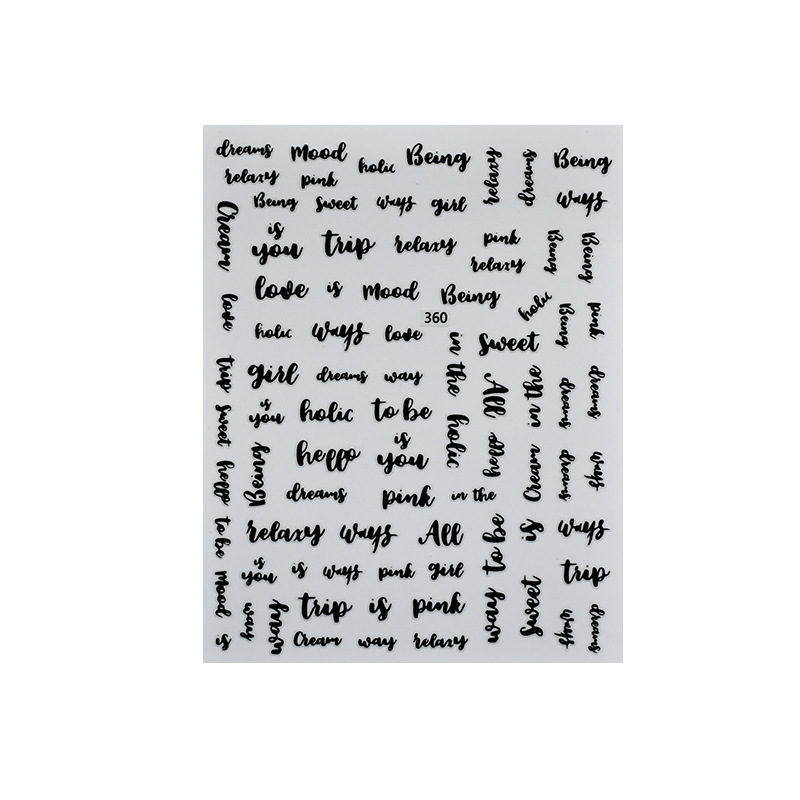 dreams Mood holic Being relaxy dreams Being
relaxy pink
Being Sweet ways girl ways
Cream is you trip relaxy pink Being Being
relaxy
love is Mood Being holic
love holic ways love 360 in the Sweet Being pink
trip girl dreams way All in the dreams dreams
sweet is you holic to be holic hello
hello Being hello is you Cream dreams ways
dreams pink in the
to be relaxy ways All to be is ways
Mood is you is ways pink girl trip
way ways trip is pink ways Sweet ways dreams
is Cream way relaxy